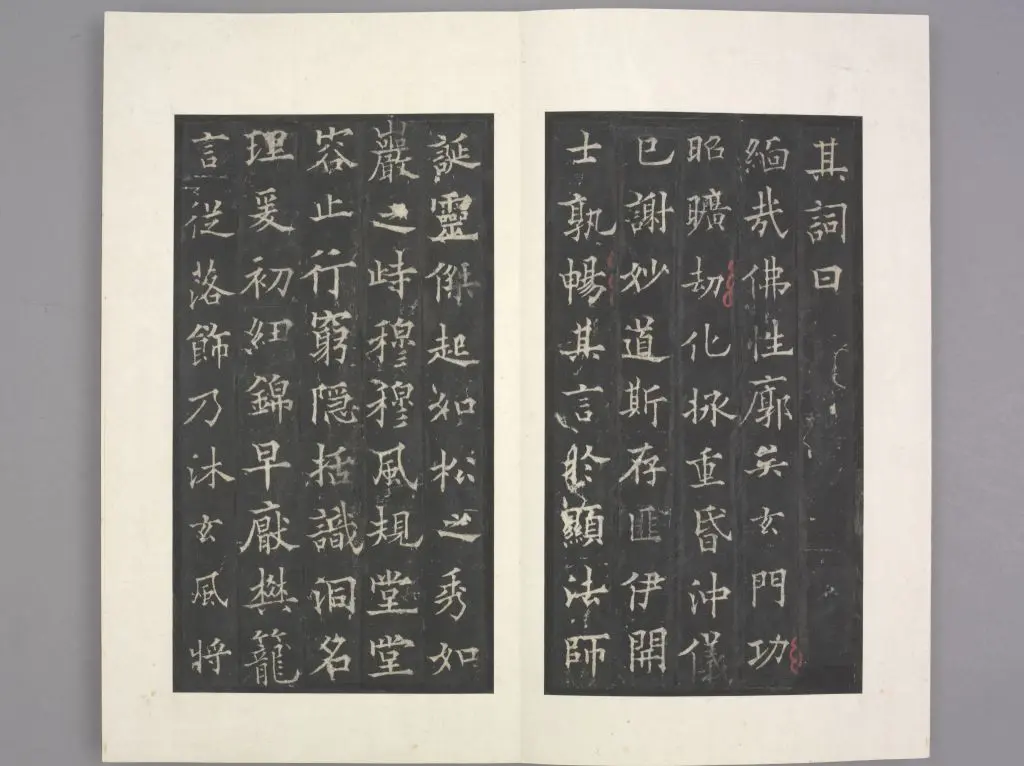 其詞曰
緬哉佛性廓矣玄門功
昭曠劫化拯重昏沖儀
已謝妙道斯存匪伊開
士孰暢其言於顯法師
誕靈傑起如松之秀如
巖之峙穆穆風規堂堂
容止行窮隐括識洞名
理爰初紐錦早厭樊籠
言從落飾乃沐玄風將